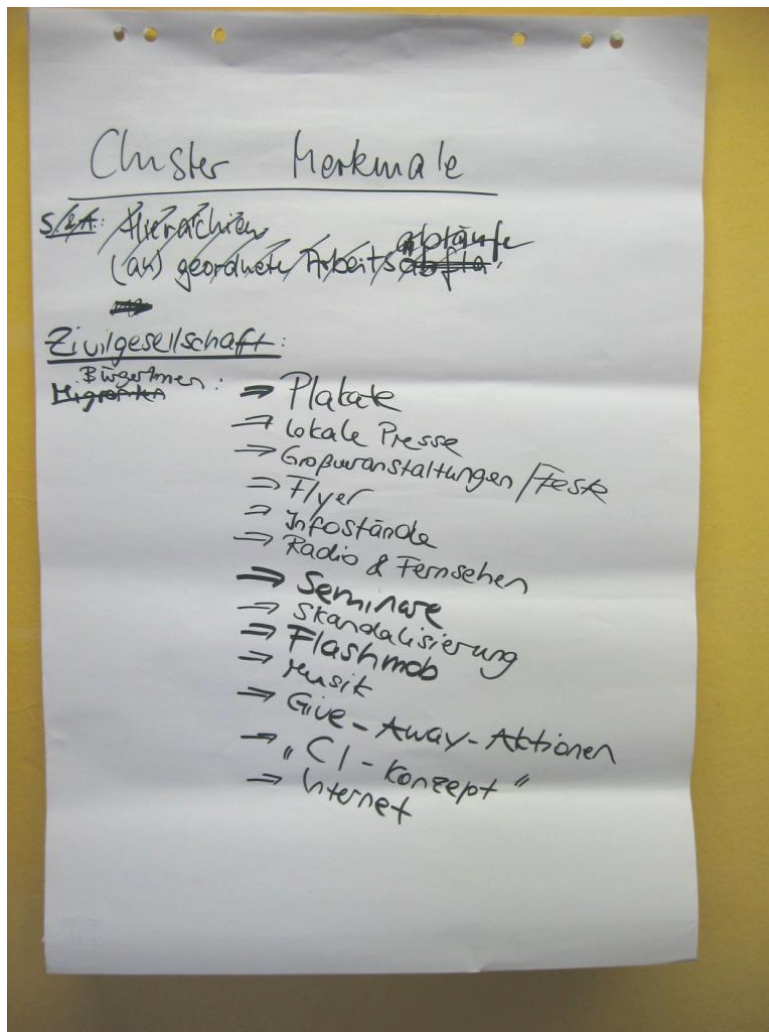 Cluster Merkmale
Hierarchien
(an) geordnete Arbeitsabläufe
Zivilgesellschaft:
BürgerInnen:
Migranten
⇒ Plakate
⇒ lokale Presse
⇒ Großveranstaltungen / Feste
⇒ Flyer
⇒ Infostände
⇒ Radio & Fernsehen
⇒ Seminare
⇒ Skandalisierung
⇒ Flashmob
⇒ Musik
⇒ Give-Away-Aktionen
⇒ "CI-Konzept"
⇒ Internet